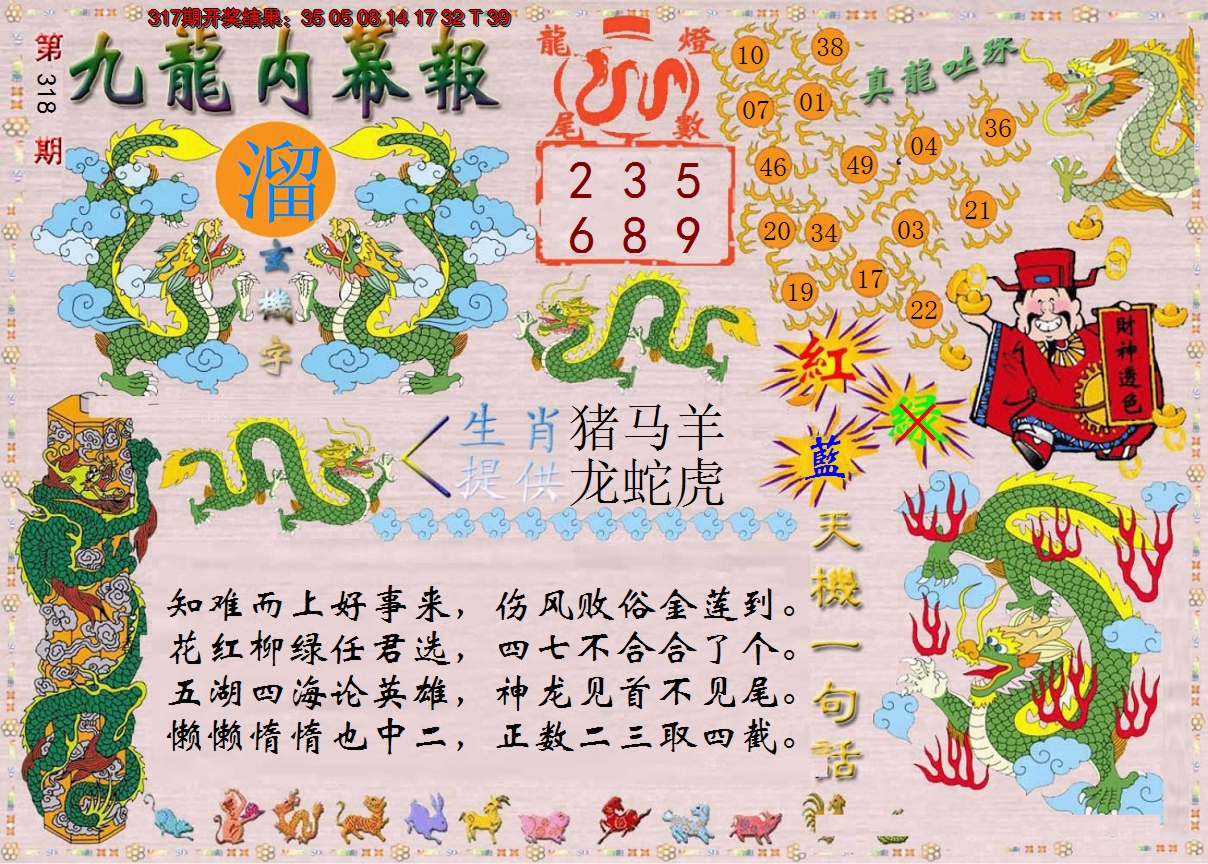 317期开奖结果：35 05 08 14 17 32 T 39
第318期
九龍内幕報
溜
玄機字
龍燈
尾數
2 3 5
6 8 9
真龍吐珠
10 38
07 01
46 49 04 36
20 34 03 21
19 17 22
紅
绿
藍
財神透色
生肖 猪马羊
提供 龙蛇虎
天機一句話
知难而上好事来，伤风败俗金莲到。
花红柳绿任君选，四七不合合了个。
五湖四海论英雄，神龙见首不见尾。
懒懒惰惰也中二，正数二三取四截。